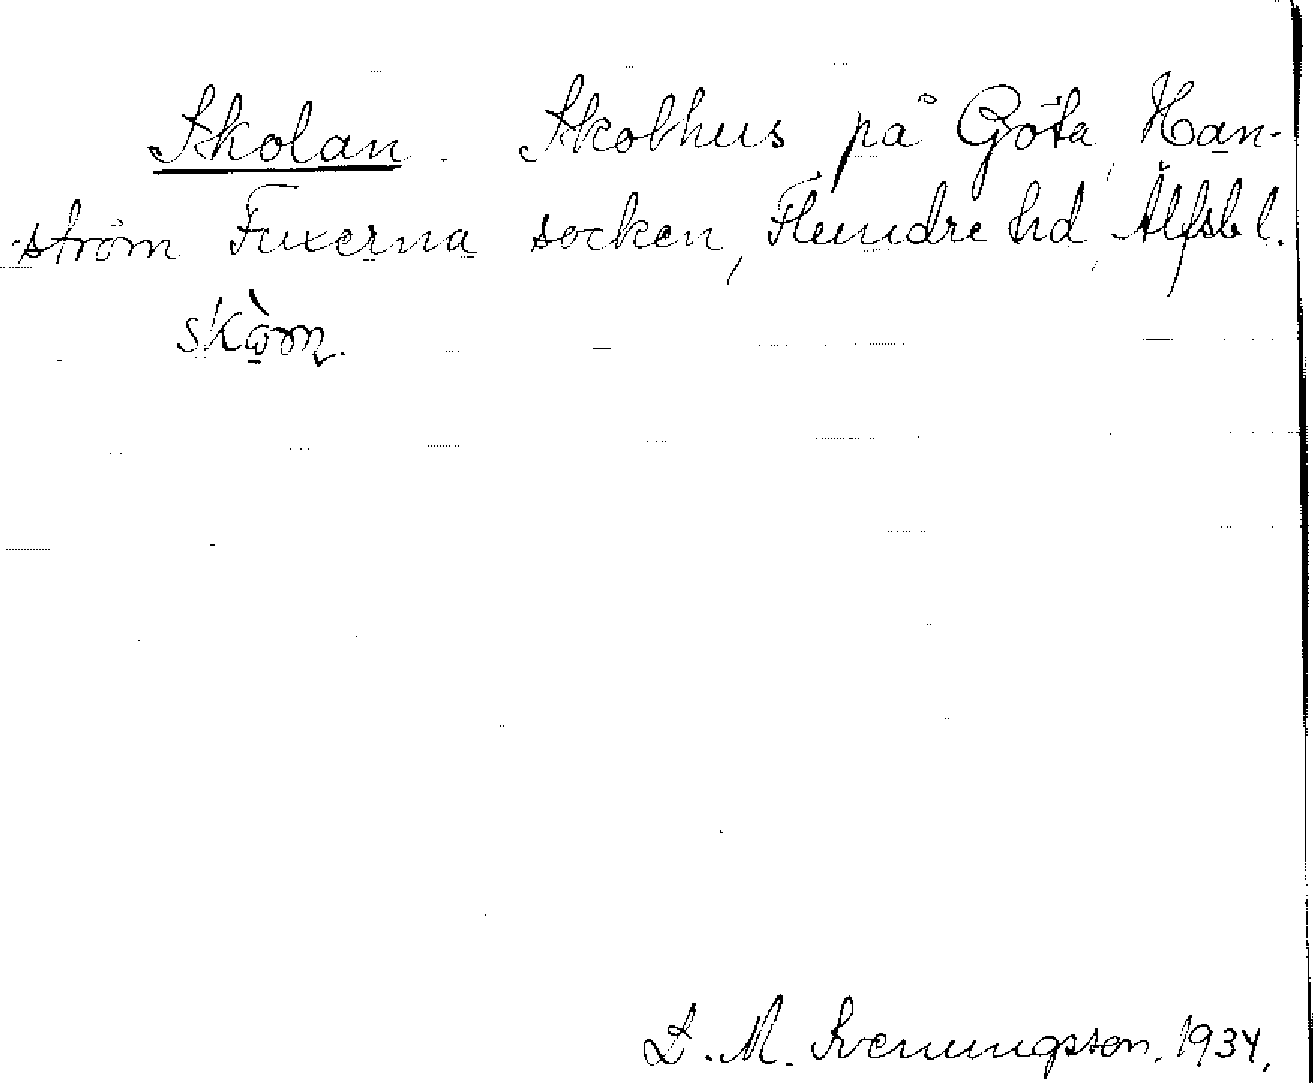 Skolan. Skolhus på Göta, Han-
ström Fuxerna socken, Flundre hd, Älfsb l.
D. M. Svenungsson. 1934.